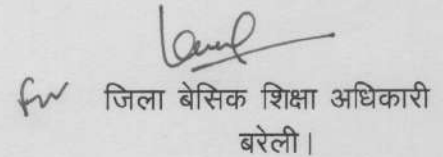 for जिला बेसिक शिक्षा अधिकारी
बरेली।